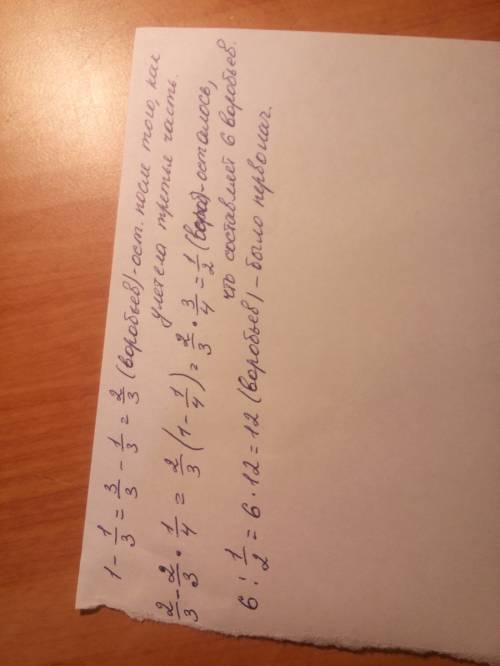 1 - 1/3 = 3/3 - 1/3 = 2/3 (воробьев) - ост. после того, как
улетела третья часть.
2/3 - 2/3 · 1/4 = 2/3 (1 - 1/4) = 2/3 · 3/4 = 1/2 (вороб) - осталось,
что составляет 6 воробьев.
6 : 1/2 = 6 · 12 = 12 (воробьев) - было первонач.